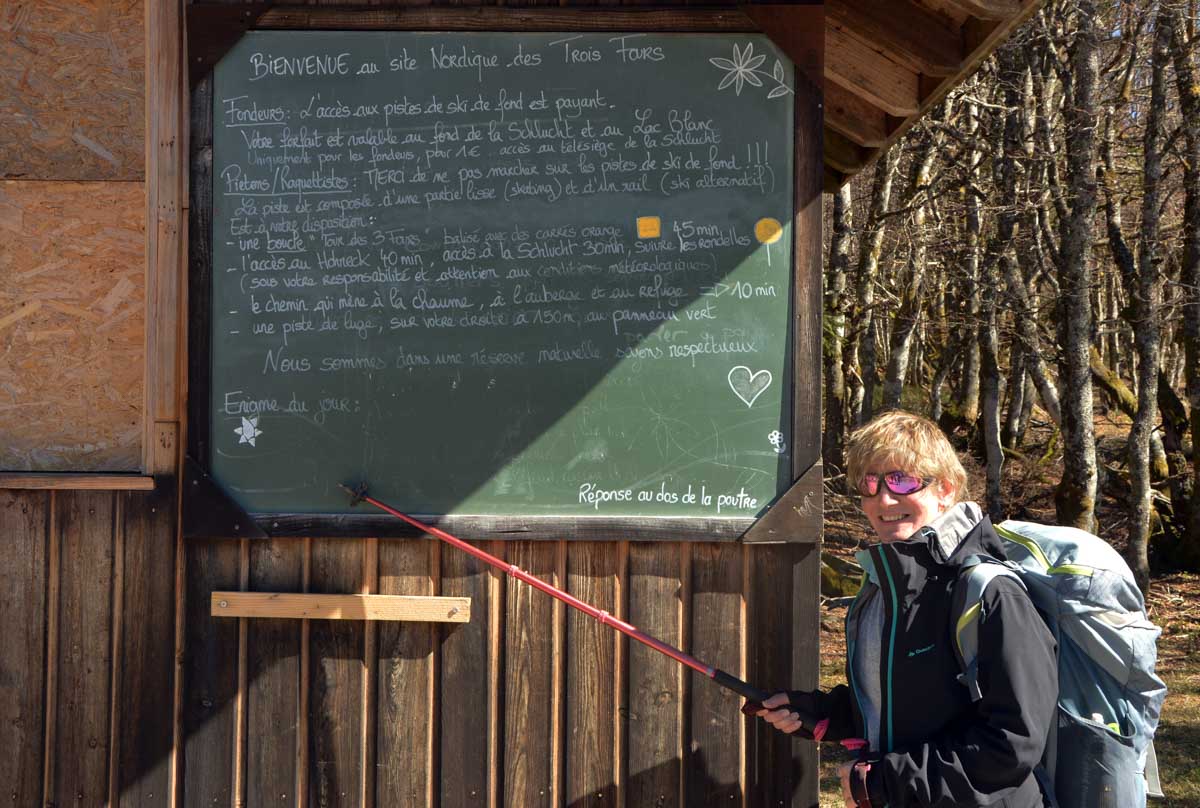 BIENVENUE au site Nordique des Trois Fours
Fondeurs : L'accès aux pistes de ski de fond est payant.
Votre forfait est valable au fond de la Schlucht et au Lac Blanc
Uniquement pour les fondeurs, pour 1€ accès au télésiège de la Schlucht
Piétons/Raquettistes : MERCI de ne pas marcher sur les pistes de ski de fond !!!!
La piste est composée d'une partie lisse (skating) et d'un rail (ski alternatif)
Est à votre disposition :
- une boucle "Tour des 3 Fours" balisé avec des carrés orange 45 min,
- l'accès au Hohneck 40 min, accès à la Schlucht 30min, suivre les rondelles
(sous votre responsabilité et attention aux conditions météorologiques)
- le chemin qui mène à la chaume, à l'auberge et au refuge => 10 min
- une piste de luge, sur votre droite à 150m, au panneau vert
Nous sommes dans une réserve naturelle soyons respectueux
Enigme du jour :
Réponse au dos de la poutre